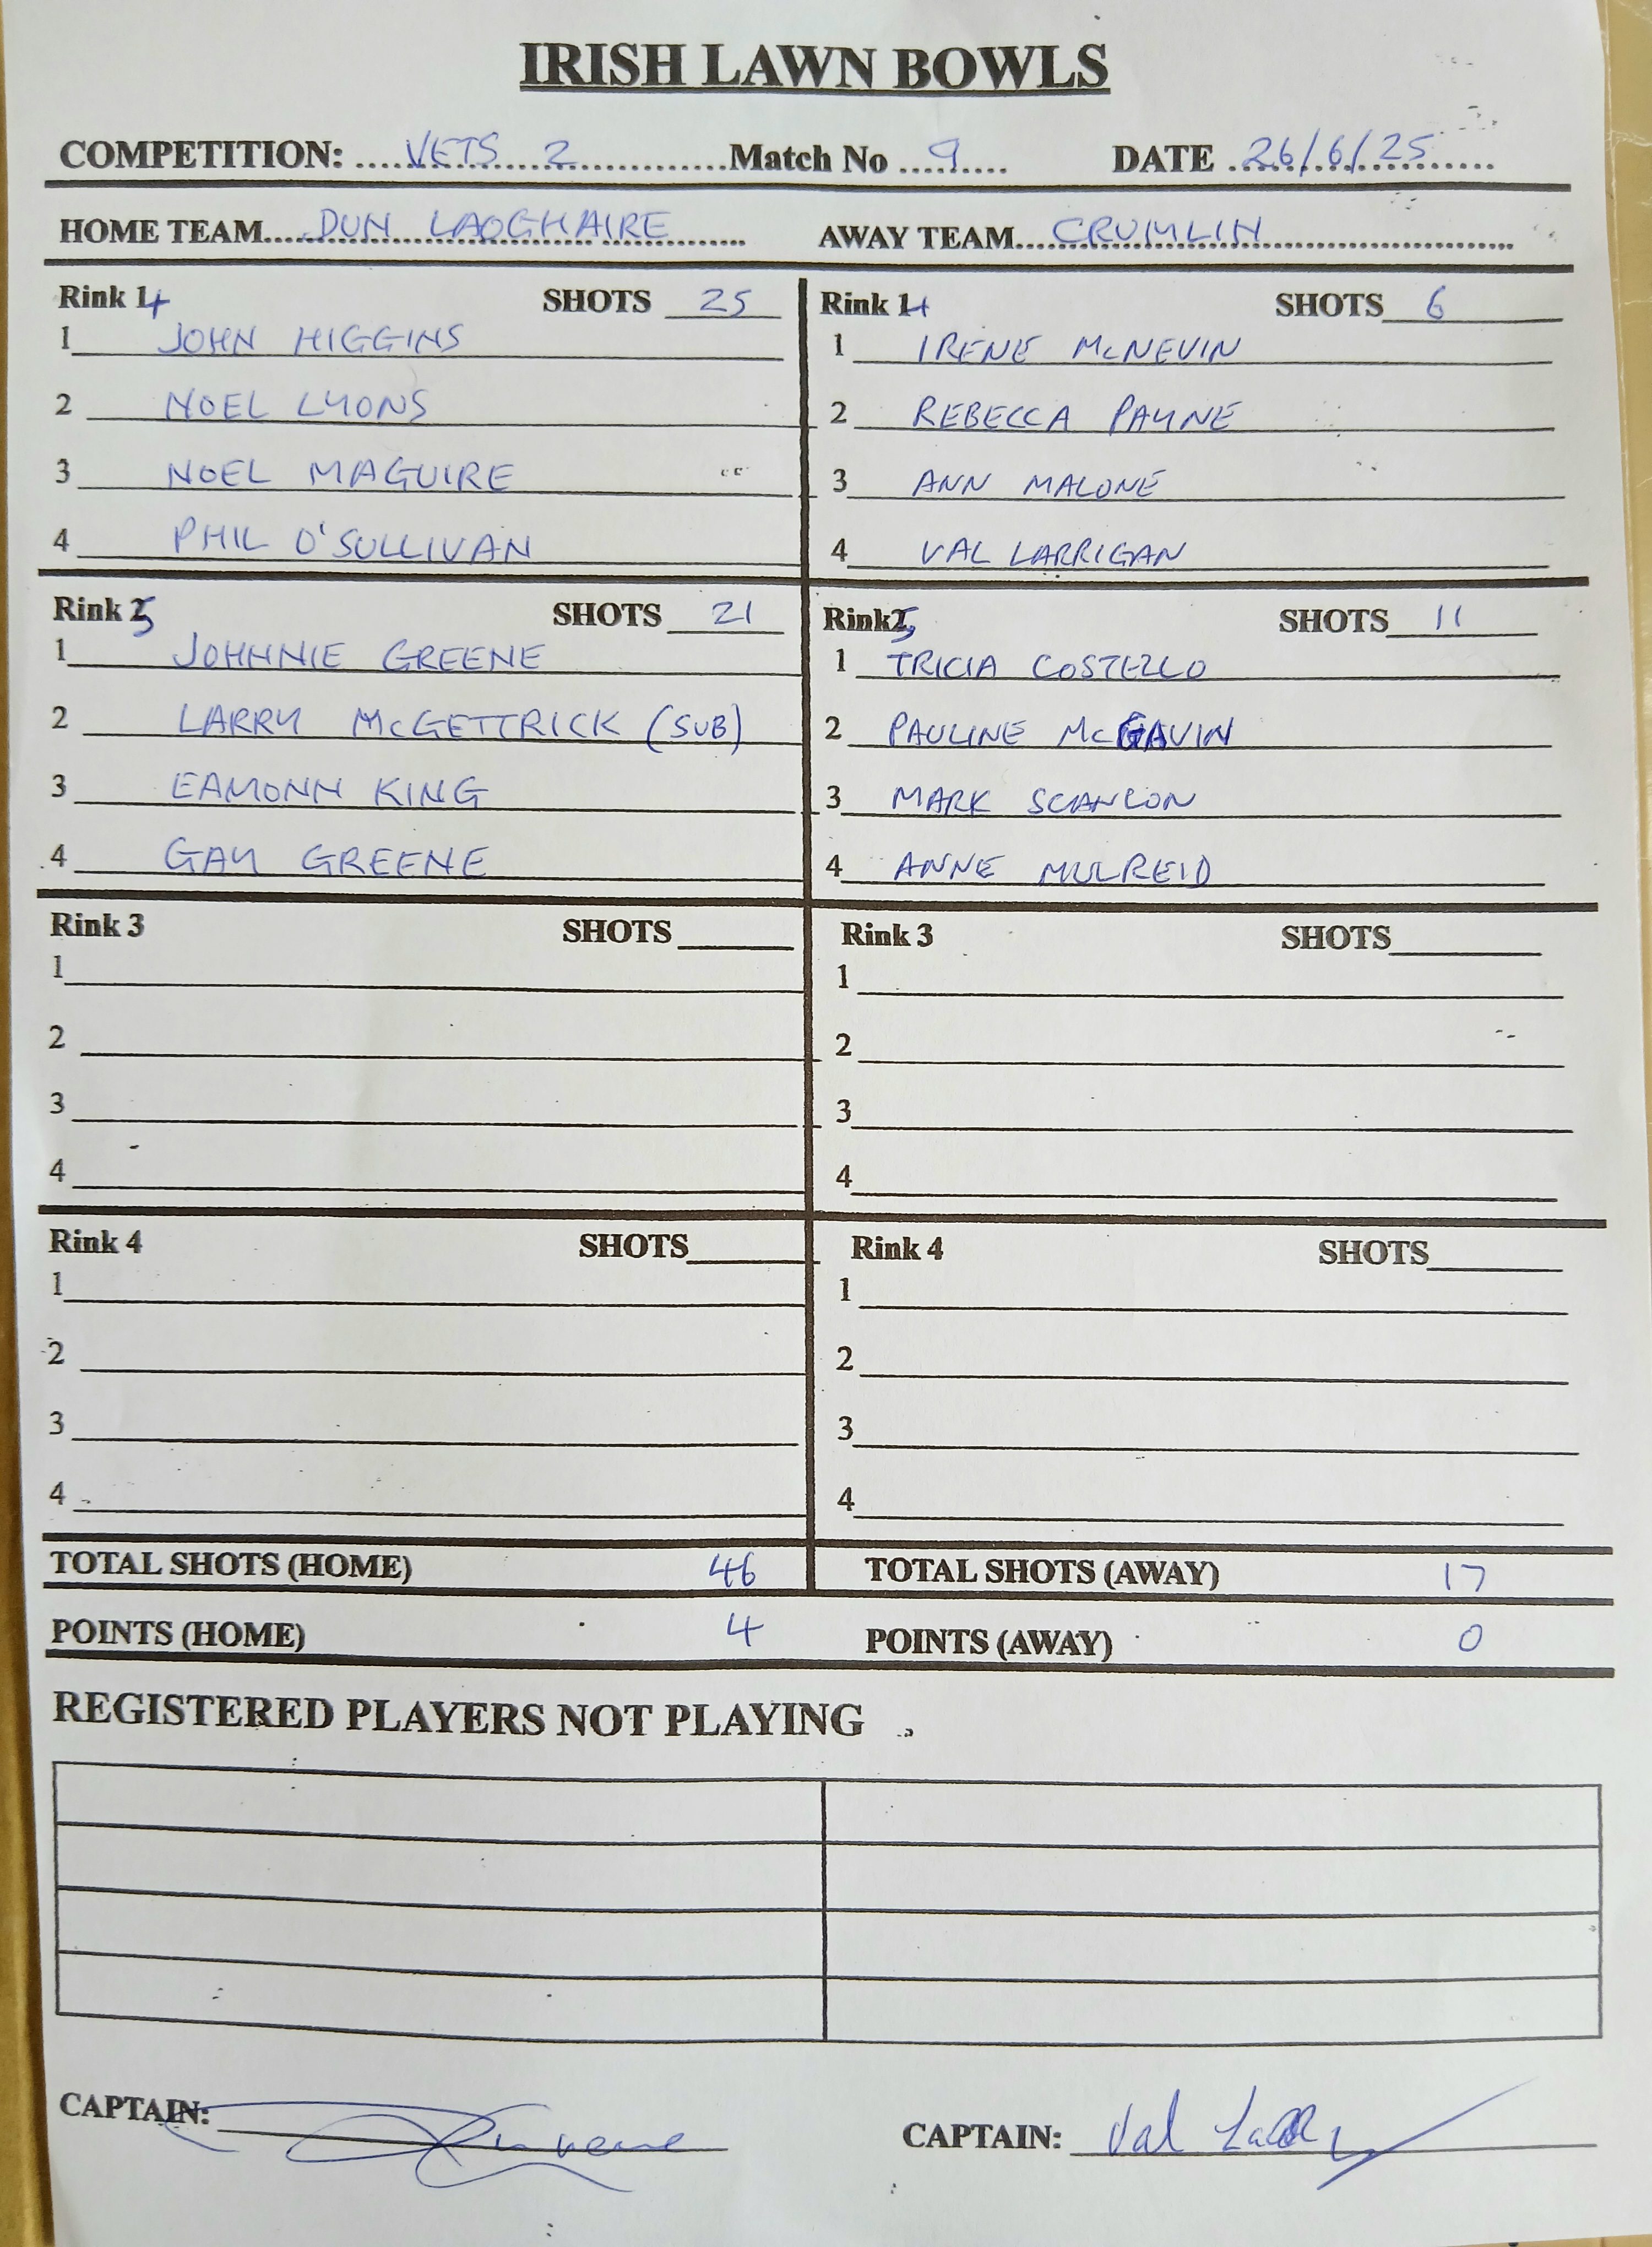 IRISH LAWN BOWLS
COMPETITION: ....VETS 2............Match No ....9..... DATE ..26/6/25......
HOME TEAM.....DUN LAOGHAIRE........ AWAY TEAM....CRUMLIN..................
Rink 4 SHOTS 25
1 JOHN HIGGINS
2 NOEL LYONS
3 NOEL MAGUIRE
4 PHIL O'SULLIVAN
Rink 4 SHOTS 6
1 IRENE McNEVIN
2 REBECCA PAYNE
3 ANN MALONE
4 VAL LARRIGAN
Rink 5 SHOTS 21
1 JOHNNIE GREENE
2 LARRY McGETTRICK (SUB)
3 EAMONN KING
4 GAY GREENE
Rink 5 SHOTS 11
1 TRICIA COSTELLO
2 PAULINE McGAVIN
3 MARK SCANLON
4 ANNE MULREID
Rink 3 SHOTS
1
2
3
4
Rink 3 SHOTS
1
2
3
4
Rink 4 SHOTS
1
2
3
4
Rink 4 SHOTS
1
2
3
4
TOTAL SHOTS (HOME) 46 TOTAL SHOTS (AWAY) 17
POINTS (HOME) 4 POINTS (AWAY) 0
REGISTERED PLAYERS NOT PLAYING
CAPTAIN:
CAPTAIN: Val